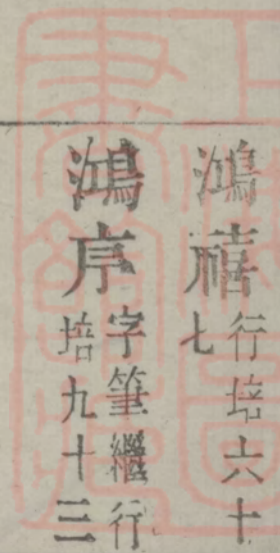 鴻禧行培六十七
鴻序字筆繼行培九十三